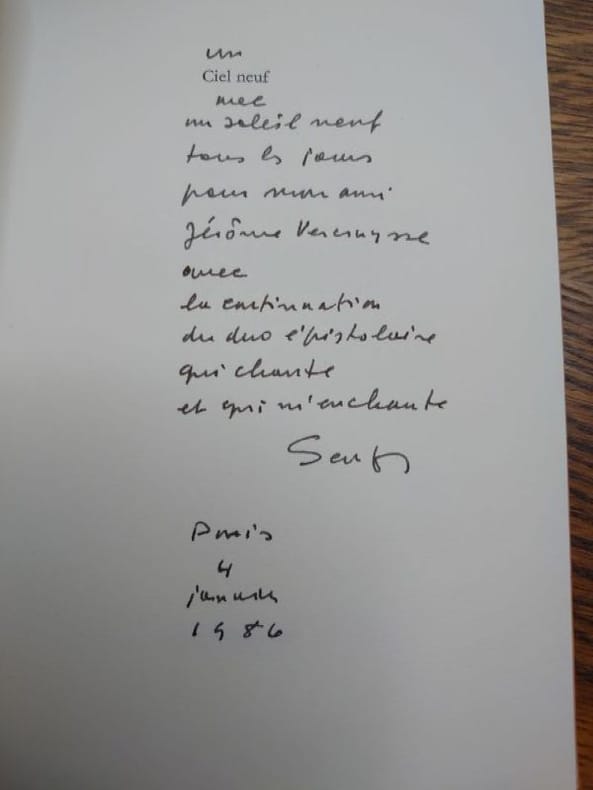 un
Ciel neuf
avec
un soleil neuf
tous les jours
pour mon ami
Jérôme Vercruysse
avec
la continuation
du duo épistolaire
qui chante
et qui m'enchante
Paris
4
janvier
1986